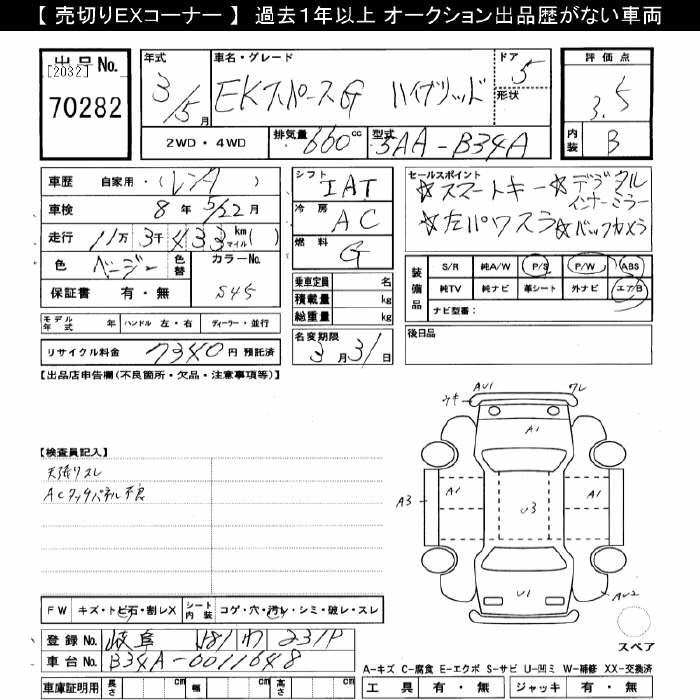 【 売切りEXコーナー 】 過去1年以上 オークション出品歴がない車両
出品No.
[2032]
70282
年式
3/5月
車名・グレード
EKスペースG ハイブリッド
ドア
5
形状
評価点
3.5
内装
B
2WD・4WD
排気量
660cc
型式
5AA-B34A
車歴 自家用・(レンタ)
車検 8年5/22月
走行 11万3千433km(マイル)
色 ベージュ
色替
カラーNo.
S45
保証書 有・無
シフト
IAT
冷房
AC
燃料
G
セールスポイント
☆スマートキー☆デジタル
インナーミラー
☆左パワスラ☆バックカメラ
乗車定員 名
積載量 kg
総重量 kg
装備品
S/R 純A/W P/S P/W ABS
純TV 純ナビ 革シート 外ナビ エア/B
ナビ型番:
モデル年式 年 ハンドル 左・右 ディーラー・並行
リサイクル料金 7340円 預託済
名変期限
3月31日
後日品
【出品店申告欄(不良箇所・欠品・注意事項等)】
【検査員記入】
天張りスレ
ACタッチパネル不良
ウキ
AU1
ワレ
A1
A3
A1
U3
A1
U1
AU2
スペア
FW キズ・トビ石・割レX
シート内装 コゲ・穴・汚レ・シミ・破レ・スレ
登録No. 岐阜 581 わ 231P
車台No. B34A-0011648
車庫証明用 長さ cm 幅 cm 高さ cm
A-キズ C-腐食 E-エクボ S-サビ U-凹ミ W-補修 XX-交換済
工具 有・無 ジャッキ 有・無